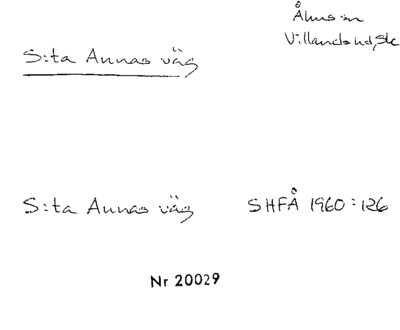 Åhus sn
Villands hd, Sk
S:ta Annas väg
S:ta Annas väg SHFÅ 1960:126
Nr 20029